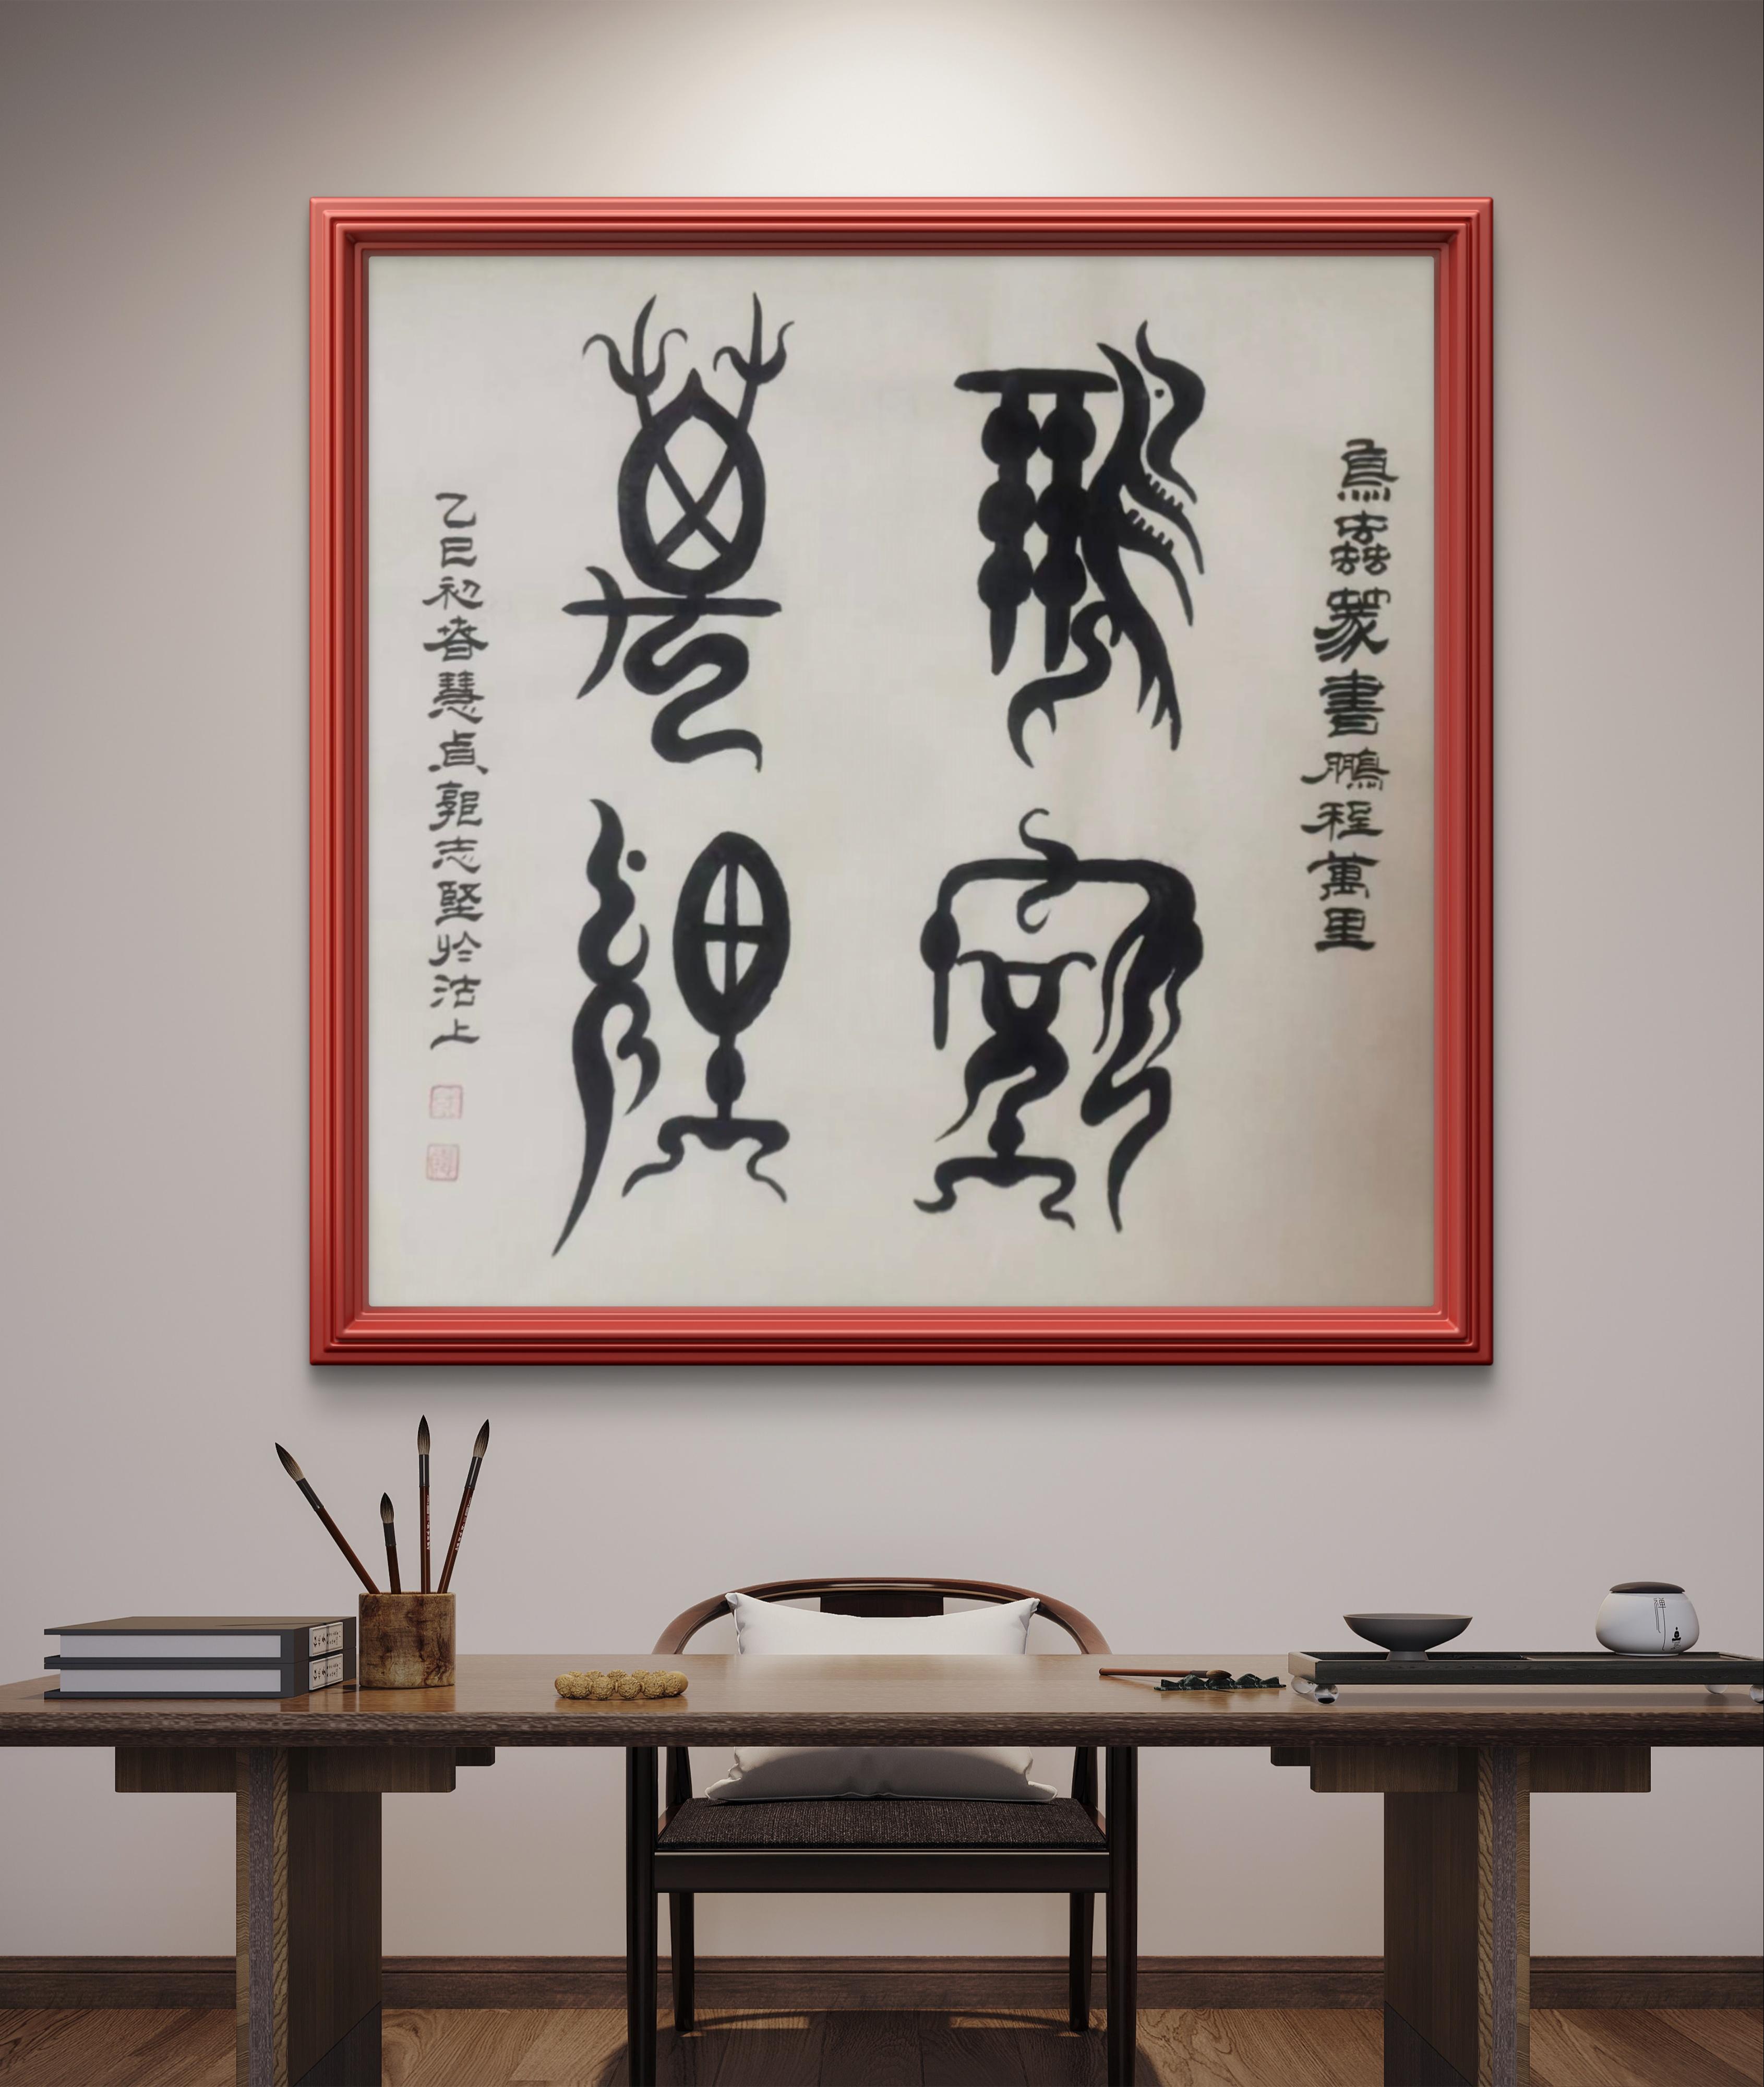 鳥蟲篆書鵬程萬里
鵬程
萬里
乙巳初春慧貞郭志堅於沽上
禪